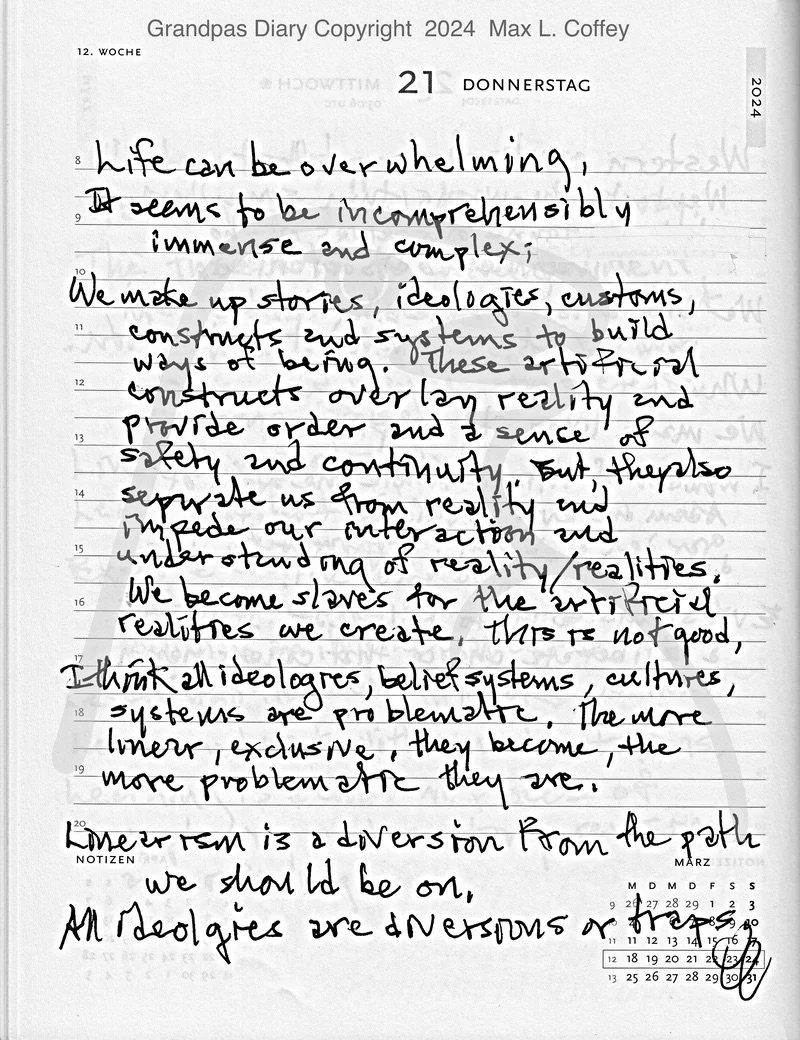 Grandpas Diary Copyright 2024 Max L. Coffey
12. WOCHE
21 DONNERSTAG
2024
8 Life can be overwhelming,
9 It seems to be incomprehensibly
immense and complex;
10
We make up stories, ideologies, customs,
11 constructs and systems to build
ways of being. These artificial
12 constructs overlay reality and
provide order and a sense of
13
safety and continuity. But, they also
14 seperate us from reality and
impede our interaction and
15 understanding of reality/realities.
We become slaves for the artificial
16
realities we create, this is not good,
17
I think all ideologies, belief systems, cultures,
18 systems are problematic. The more
linear, exclusive, they become, the
19 more problematic they are.
20
Linearism is a diversion from the path
NOTIZEN
MÄRZ
we should be on,
All ideolgies are diversions or traps.
M D M D F S S
9 26 27 28 29 1 2 3
11 11 12 13 14 15 16 17
12 18 19 20 21 22 23 24
13 25 26 27 28 29 30 31